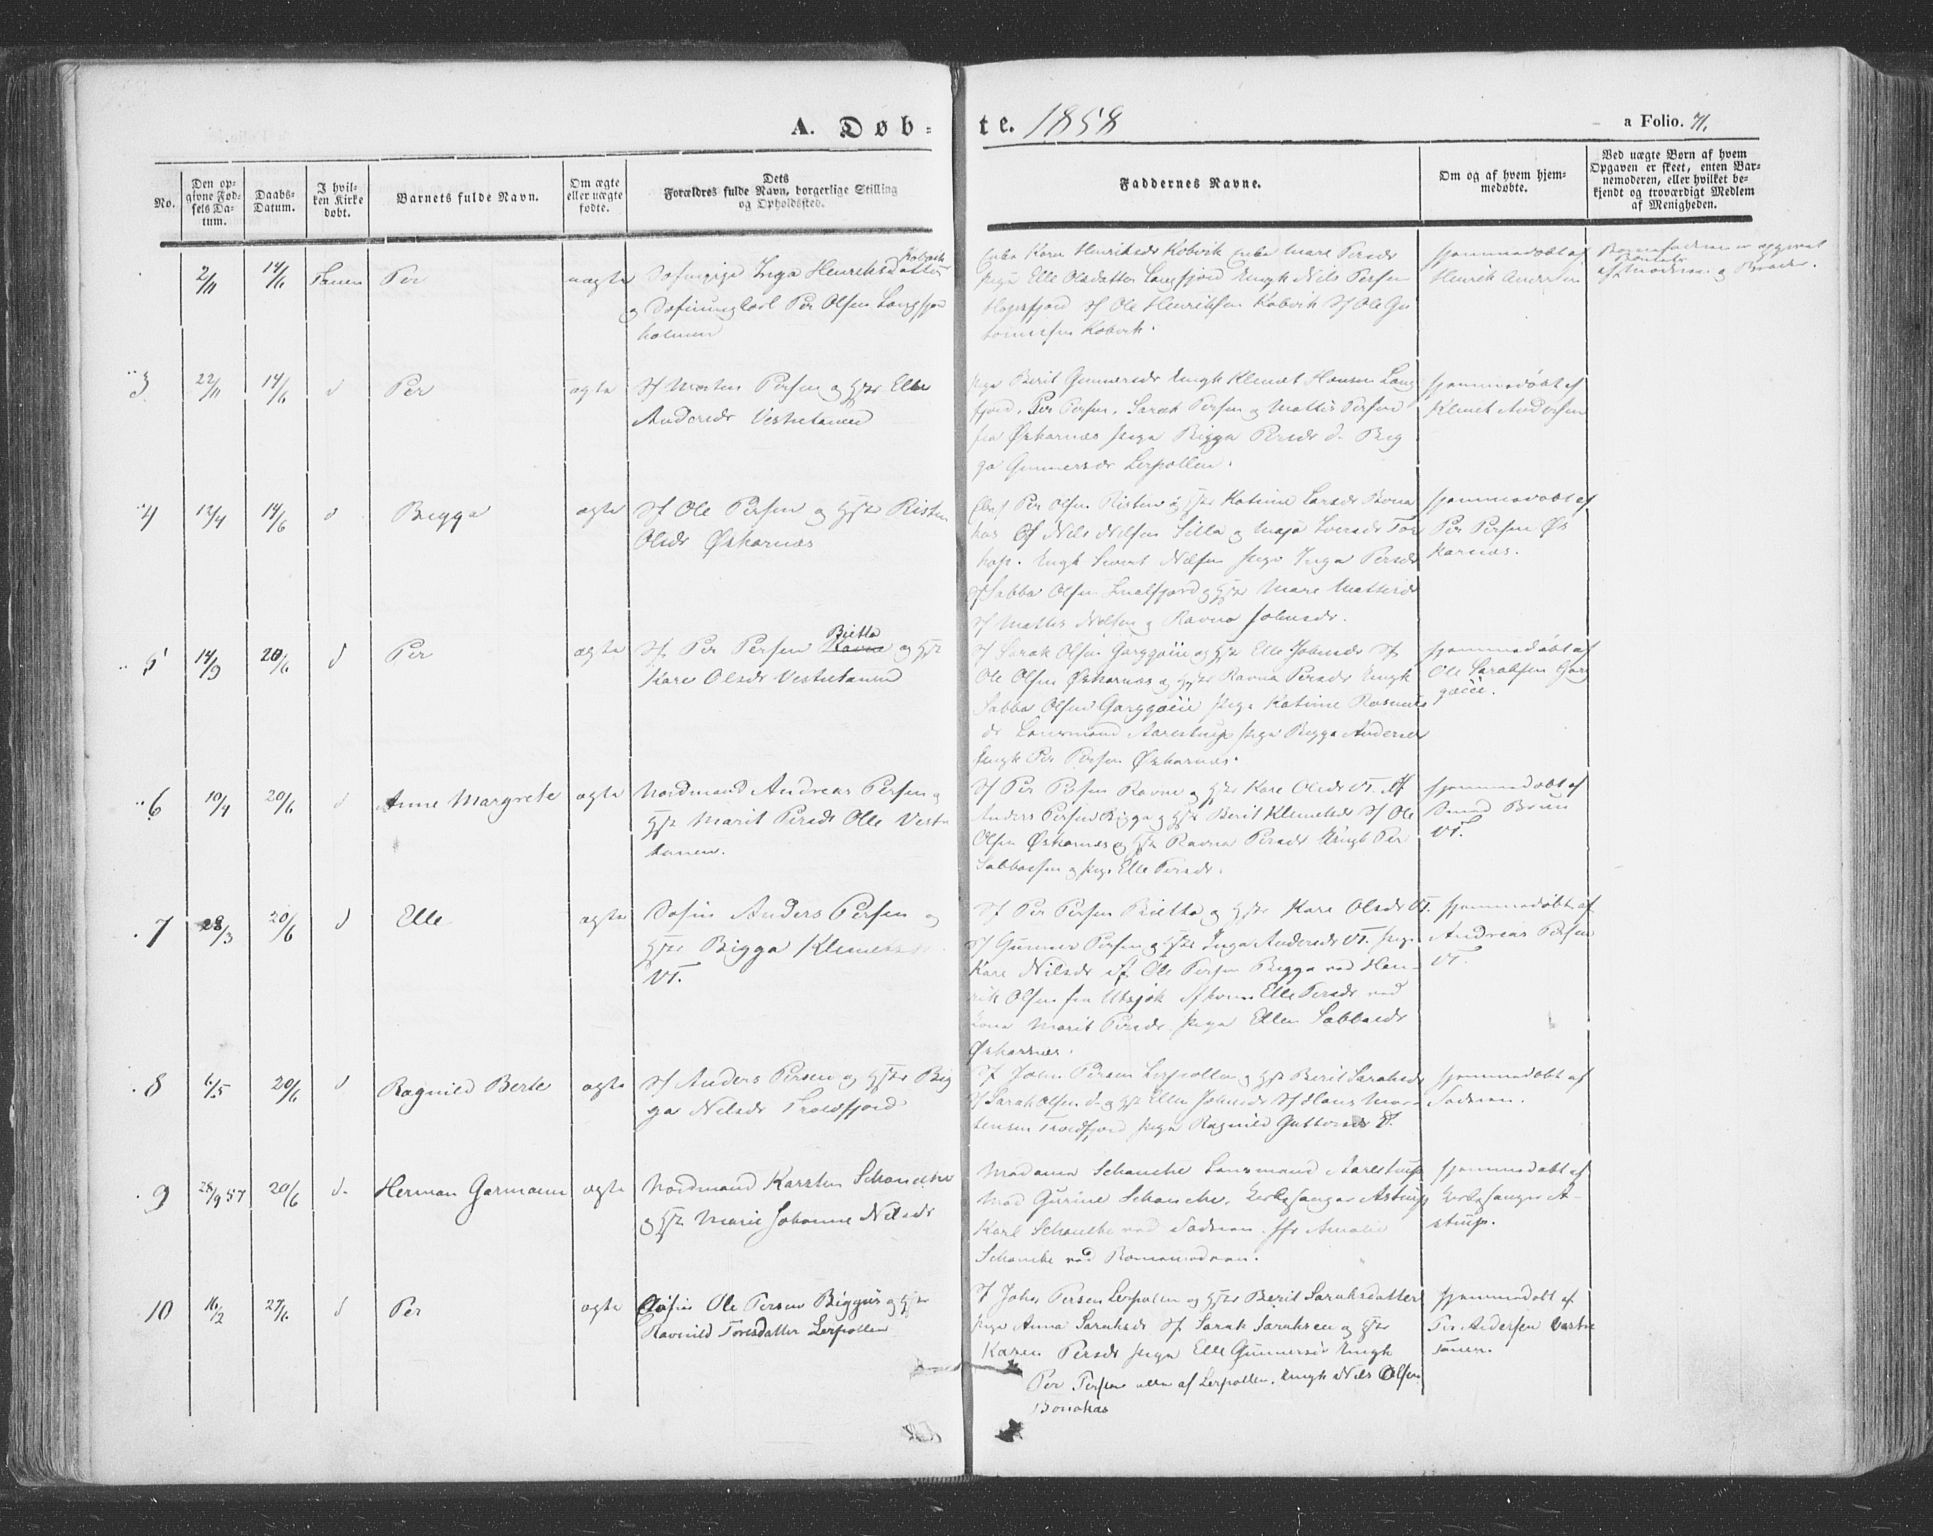 A. Døb-te. 1858
a Folio. 71.
No.
Den opgivne Fødsels Datum.
Daabs-Datum.
I hvilken Kirke døbt.
Barnets fulde Navn.
Om ægte eller uægte fødte.
Dets Forældres fulde Navn, borgerlige Stilling og Opholdssted.
Faddernes Navne.
Om og af hvem hjemmedøbte.
Ved uægte Børn af hvem Opgaven er skeet, enten Barnemoderen, eller hvilket bekjendt og troværdigt Medlem af Menigheden.
2/11 14/6 Tanen Per uægte
Inga Henriksdatter Kobvik
og Per Olsen Langfjord
holmen
Enke Karen Henriksdr Kobvik Enke Mare Persdr
Pige Elle Olsdatter Langfjord Ungk Nils Persen
Sf Ole Henriksen Kobvik Sf Ole
Kobvik.
hjemmedøbt af
Henrik Andersen
Barnefaderen er opgivet
af Moderen og
3 22/11 14/6 d Per ægte
Sf Morten Persen og Hstr Elle
Andersdr Vestertanen
Pige Berit Gunnersdr Ungk Klemet Hansen Lang
fjord. Per Persen. Sarak Persen og Mattis Persen
fra Øskarnæs Pige Bigga Persdr d. Big
ga Gunnersdr Lerpollen.
hjemmedøbt af
Klemet Andersen
4 12/4 14/6 d Bigga ægte
Sf Ole Persen og Hstr Risten
Olsdr Øskarnæs
Per Olsen Risten og Hstr Katrine Larsdr Bona
kas Sf Nils Nilsen Silla og Maja Iversdr Tor
hop. Ungk Nilsen Pige Inga Persdr
Sf Sabba Olsen og Hstr Mare Mattisdr
Sf Mattis Nilsen og Ravna Johnsdr.
hjemmedøbt af
Per Persen Øs
karnæs.
5 14/3 20/6 d Per ægte
Sf. Per Persen Bietta og Hstr
Kare Olsdr Vestertanen
Sf Sarak Olsen Garggoeie og Hstr Elle Johnsdr Sf
Ole Olsen Øskarnæs og Hstr Ravna Persdr Ungk
Sabba Olsen Garggoeie Pige Katrine Rasmus
dr Lensmand Aarestrup Pige Bigga Andersdr
Ungk Per Persen Øskarnæs.
hjemmedøbt af
Ole Saraksen Garg
goeie.
6 10/4 20/6 d Anne Margrete ægte
Nordmand Andreas Persen og
Hstr Marit Persdr Olle Vester
tanen.
Sf Per Persen Ravna og Hstr Kare Olsdr VT. Sf
Anders Persen Bigga og Hstr Berit Klemetsdr Sf Ole
Olsen Øskarnæs og Hstr Ravna Persdr Ungk Per
Sabbasen og Pige Elle Persdr.
hjemmedøbt af
Smed Bruun
VT.
7 28/3 20/6 d Elle ægte
Anders Persen og
Hstr Bigga Klemetsdr
VT.
Sf Per Persen Bietta og Hstr Kare Olsdr VT.
Sf Gunner Persen og Hstr Inga Andersdr VT. Pige
Kare Nilsdr Sf Ole Persen Bigga ved Hen
rik Olsen fra Utsjok Elle Persdr ved
Marit Persdr Pige Ellen Sabbasdr
Øskarnæs.
hjemmedøbt af
Andreas Persen
VT.
8 6/5 20/6 d Ragnild Berte ægte
Sf Anders Persen og Hstr Big
ga Nilsdr Troldfjord
Sf John Persen Lerpollen og Hstr Berit Saraksdr
Sf Sarak Olsen d. og Hstr Ellen Johnsdr Sf Hans Mor
tensen Troldfjord Pige Ragnild Guttormsdr d.
hjemmedøbt af
Faderen.
9 28/9 57 20/6 d. Herman Garmann ægte
Nordmand Karsten Schanche
og Hstr Marie Johanne Nilsdr
Madame Schanche Lensmand Aarestrup
Mad Gurine Schanche. Kirkesanger Astrup
Karl Schanche ved Faderen. Jfr Amalie
Schanche ved Barnemoderen.
hjemmedøbt af
Kirkesanger A-
strup.
10 16/2 27/6 d Per ægte
Ole Persen Biggus og Hstr
Ravnild Toresdatter Lerpollen
Sf John Persen Lerpollen og Hstr Berit Saraksdatter
Pige Anna Saraksdr Sf Sarak Saraksen og Hstr
Karen Persdr Pige Elle Gunnersdr Ungk
Per Persen alle af Lerpollen. Ungk Nils Olsen
Bonakas
hjemmedøbt af
Per Andersen Vestre
Tanen.